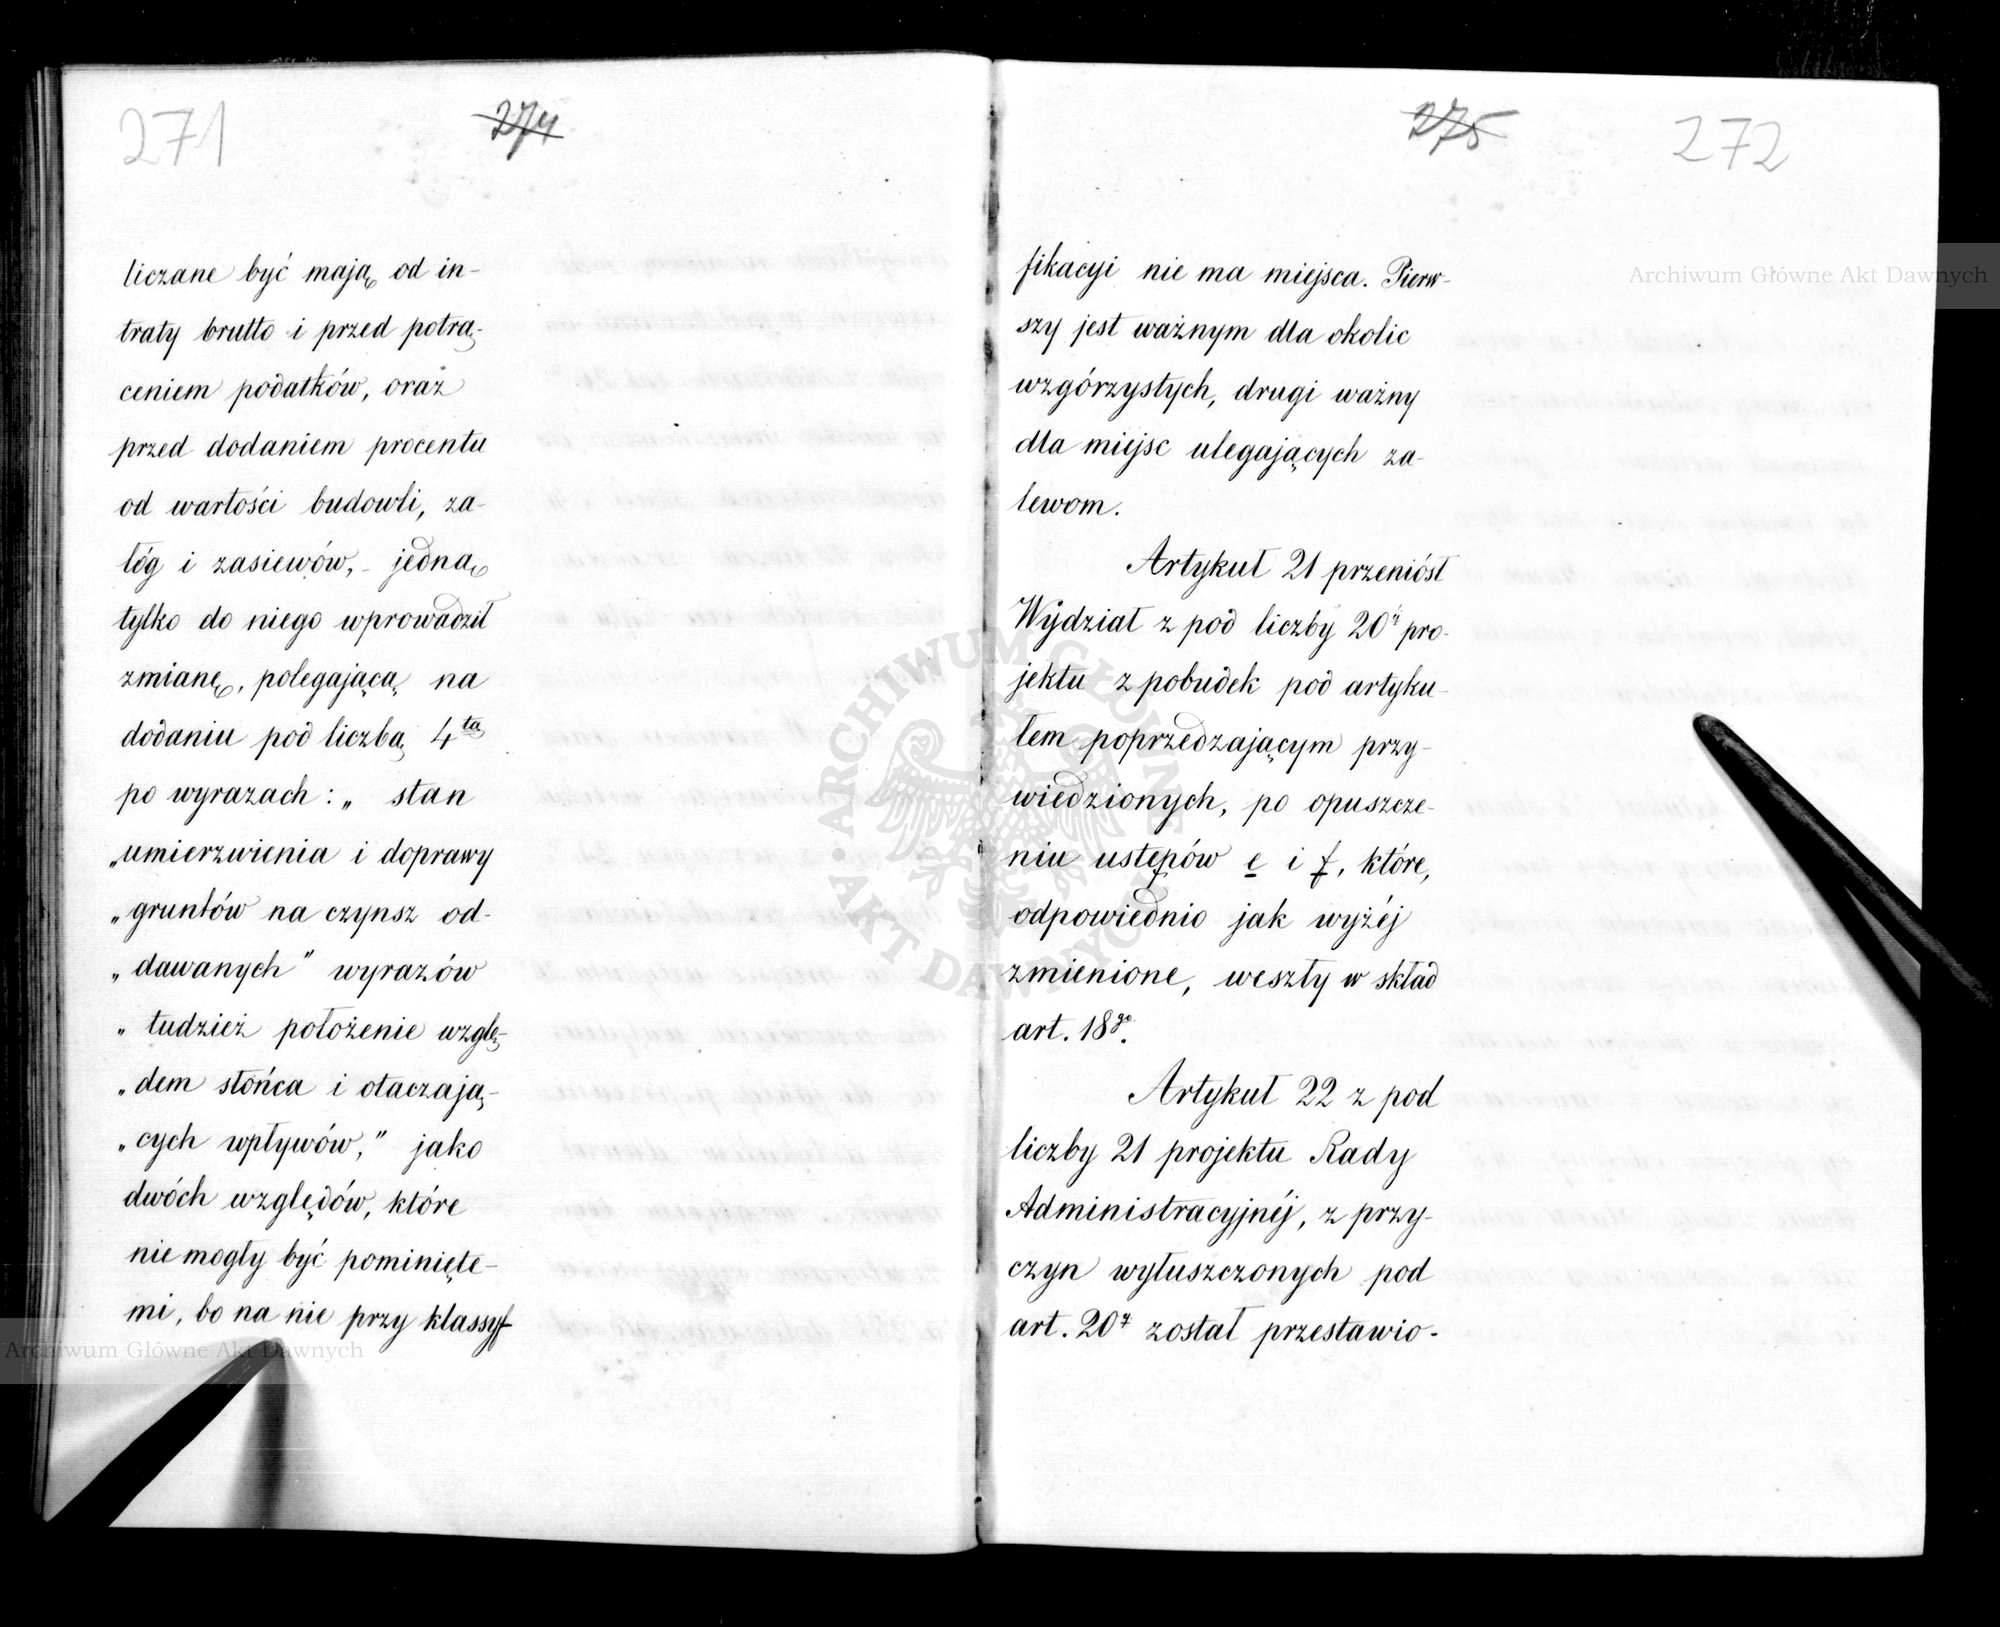 271
274
liczane być mają od in-
traty brutto i przed potrą-
ceniem podatków, oraz
przed dodaniem procentu
od wartości budowli, za-
łóg i zasiewów, - jedną
tylko do niego wprowadził
zmianę, polegającą na
dodaniu pod liczbą 4tą
po wyrazach: „ stan
„umierzwienia i doprawy
„gruntów na czynsz od-
„dawanych" wyrazów
„tudzież położenie wzglę-
„dem słońca i otaczają-
„cych wpływów," jako
dwóch względów, które
nie mogły być pominięte-
mi, bo na nie przy klassyf-
275
272
fikacyi nie ma miejsca. Pierw-
szy jest ważnym dla okolic
wzgórzystych, drugi ważny
dla miejsc ulegających za-
lewom.
Artykuł 21 przeniósł
Wydział z pod liczby 20ej pro-
jektu z pobudek pod artyku-
łem poprzedzającym przy-
wiedzionych, po opuszcze-
niu ustępów e i f, które,
odpowiednio jak wyżéj
zmienione, weszły w skład
art. 18go.
Artykuł 22 z pod
liczby 21 projektu Rady
Administracyjnéj, z przy-
czyn wyłuszczonych pod
art. 20m został przestawio-
Archiwum Główne Akt Dawnych
Archiwum Główne Akt Dawnych
ARCHIWUM GŁÓWNE
AKT DAWNYCH